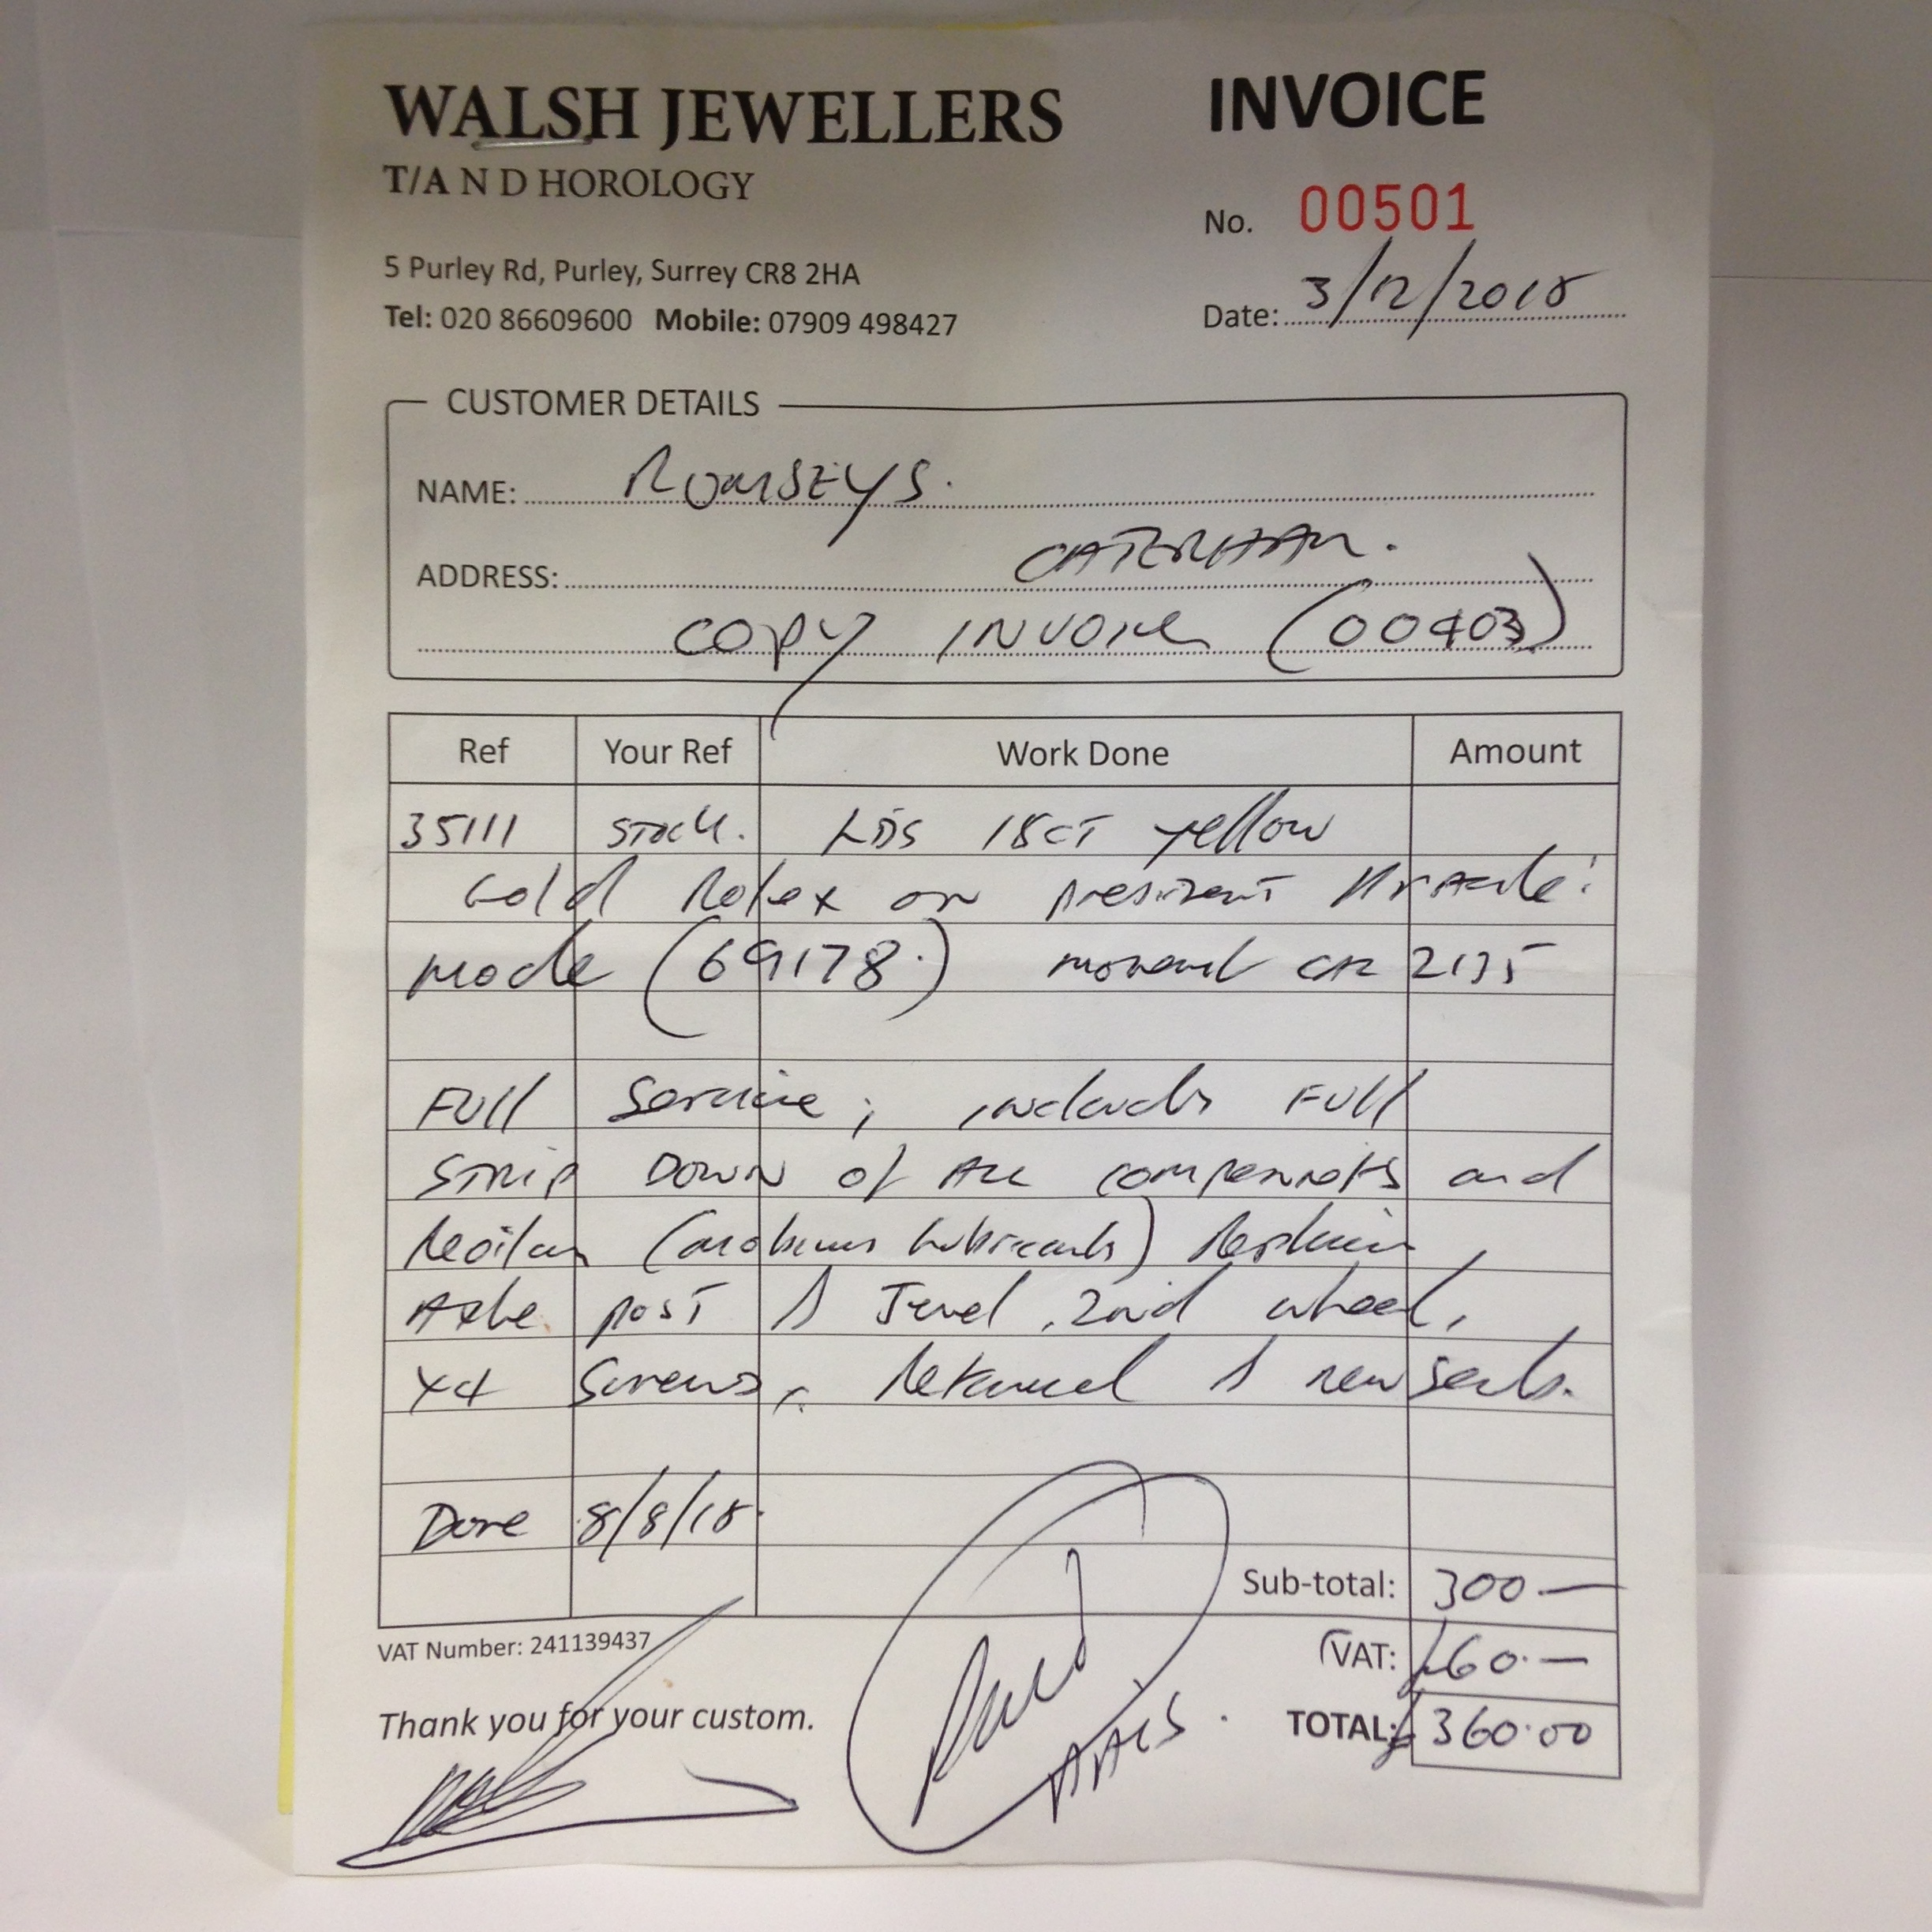 WALSH JEWELLERS
T/A N D HOROLOGY
5 Purley Rd, Purley, Surrey CR8 2HA
Tel: 020 86609600 Mobile: 07909 498427
INVOICE
No. 00501
Date: 3/12/2018
CUSTOMER DETAILS
NAME: ROMSEYS.
ADDRESS: CATERHAM.
COPY INVOICE (00403)
Ref Your Ref Work Done Amount
35111 STOCK. LDS 18CT yellow
Gold Rolex on president
Model (69178.) movement 2135
FULL Service; includes FULL
STRIP DOWN of ALL components and
lubricants)
Axle post & Jewel, 2nd wheel,
X4 Screws, & new seals.
Done 8/8/18.
Sub-total: 300 —
VAT Number: 241139437
VAT: £60.—
Thank you for your custom.
TOTAL: £360.00